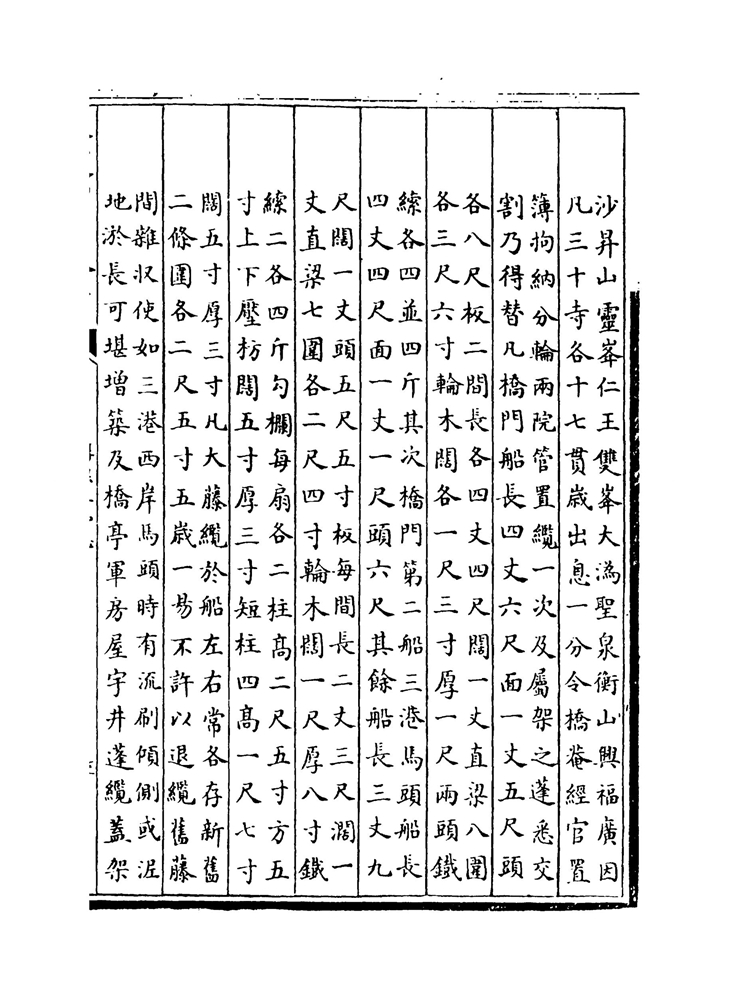 沙昇山靈峯仁王雙峯大溈聖泉衡山興福廣因
凡三十寺各十七貫歲出息一分令橋菴經官置
簿拘納分輪兩院管置纜一次及屬架之蓬悉交
割乃得替凡橋門船長四丈六尺面一丈五尺頭
各八尺板二間長各四丈四尺闊一丈直梁八圍
各三尺六寸輪木闊各一尺三寸厚一尺兩頭鐵
縤各四並四斤其次橋門第二船三港馬頭船長
四丈四尺面一丈一尺頭六尺其餘船長三丈九
尺闊一丈頭五尺五寸板每間長二丈三尺濶一
丈直梁七圍各二尺四寸輪木闊一尺厚八寸鐵
縤二各四斤勾欄每扇各二柱髙二尺五寸方五
寸上下壓枋闊五寸厚三寸短柱四髙一尺七寸
闊五寸厚三寸凡大藤纜於船左右常各存新舊
二條圍各二尺五寸五歲一易不許以退纜舊藤
間雜収使如三港西岸馬頭時有流刷傾側或泥
地淤長可堪增築及橋亭軍房屋宇井蓬纜蓋架